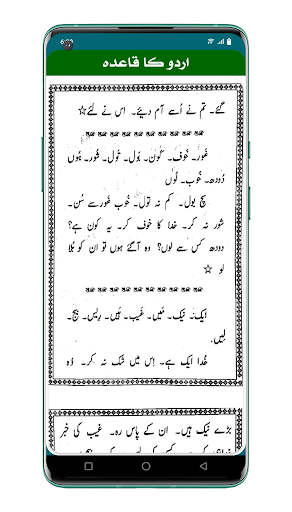 اردو کا قاعدہ
گئے۔ تم نے اُسے آم دیئے۔ اس نے لئے☆
غَور۔ خَوف۔ کَون۔ بَول۔ تَول۔ شَور۔ ہُوں
دُودھ۔ خُوب۔ لُوں
سچ بول۔ کم نہ تول۔ خُوب غَور سے سُن۔
شور نہ کر۔ خدا کا خوف کر۔ یہ کون ہے؟
دودھ کس سے لوں؟ وہ آگئے ہوں تو ان کو بُلا
لو ☆
ایک۔ نیک۔ مَیں۔ غَیب۔ ہَیں۔ رِیس۔ بیج۔
لِیں۔
خُدا ایک ہے۔ اِس میں شک نہ کر۔ وُہ
بڑے نیک ہیں۔ ان کے پاس رہ۔ غیب کی خبر